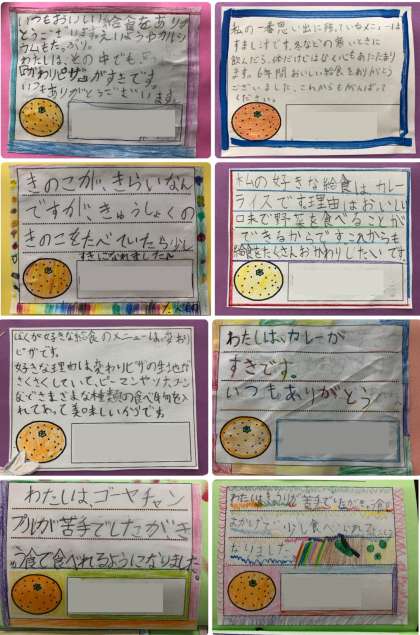 いつもおいしい給食をありが
とうございます。えいようやカルシ
ウムもたっぷり。
わたしは、その中でも、
変わりピザがすきです。
いつも
ありがとうございます。
私の一番思い出に残っているメニューは
すましじです。冬などの寒いときに
飲んだら、体だけではなく心もあたたまり
ます。6年間おいしい給食をありがとう
ございました、これからもがんばって
ください。
きのこが、きらいなん
ですが、きゅうしょくの
きのこをたべていたら少し
すきになれましたん
私の好きな給食はカレー
ライスです理由はおいしい
口未で野菜を食べることが
できるからですこれからも
給食をたくさんおかわりしたいです
ぼくが好きな給食のメニューは、変わり
ピザです。
好きな理由は、変わりピザの生地が
さくさくしていて、ピーマンやツナ、コーン
などさまざまな種類の食べ物を入
れてあって美味しいからです。
わたしは、カレーが
すきです。
いつもありがとう
わたしは、ゴーヤチャン
プルが苦手でしたがき
ゅう食で食べれるようになりました
わたしは、きゅうりが苦手でしたが、
おかげで少し食べられるように
なりました